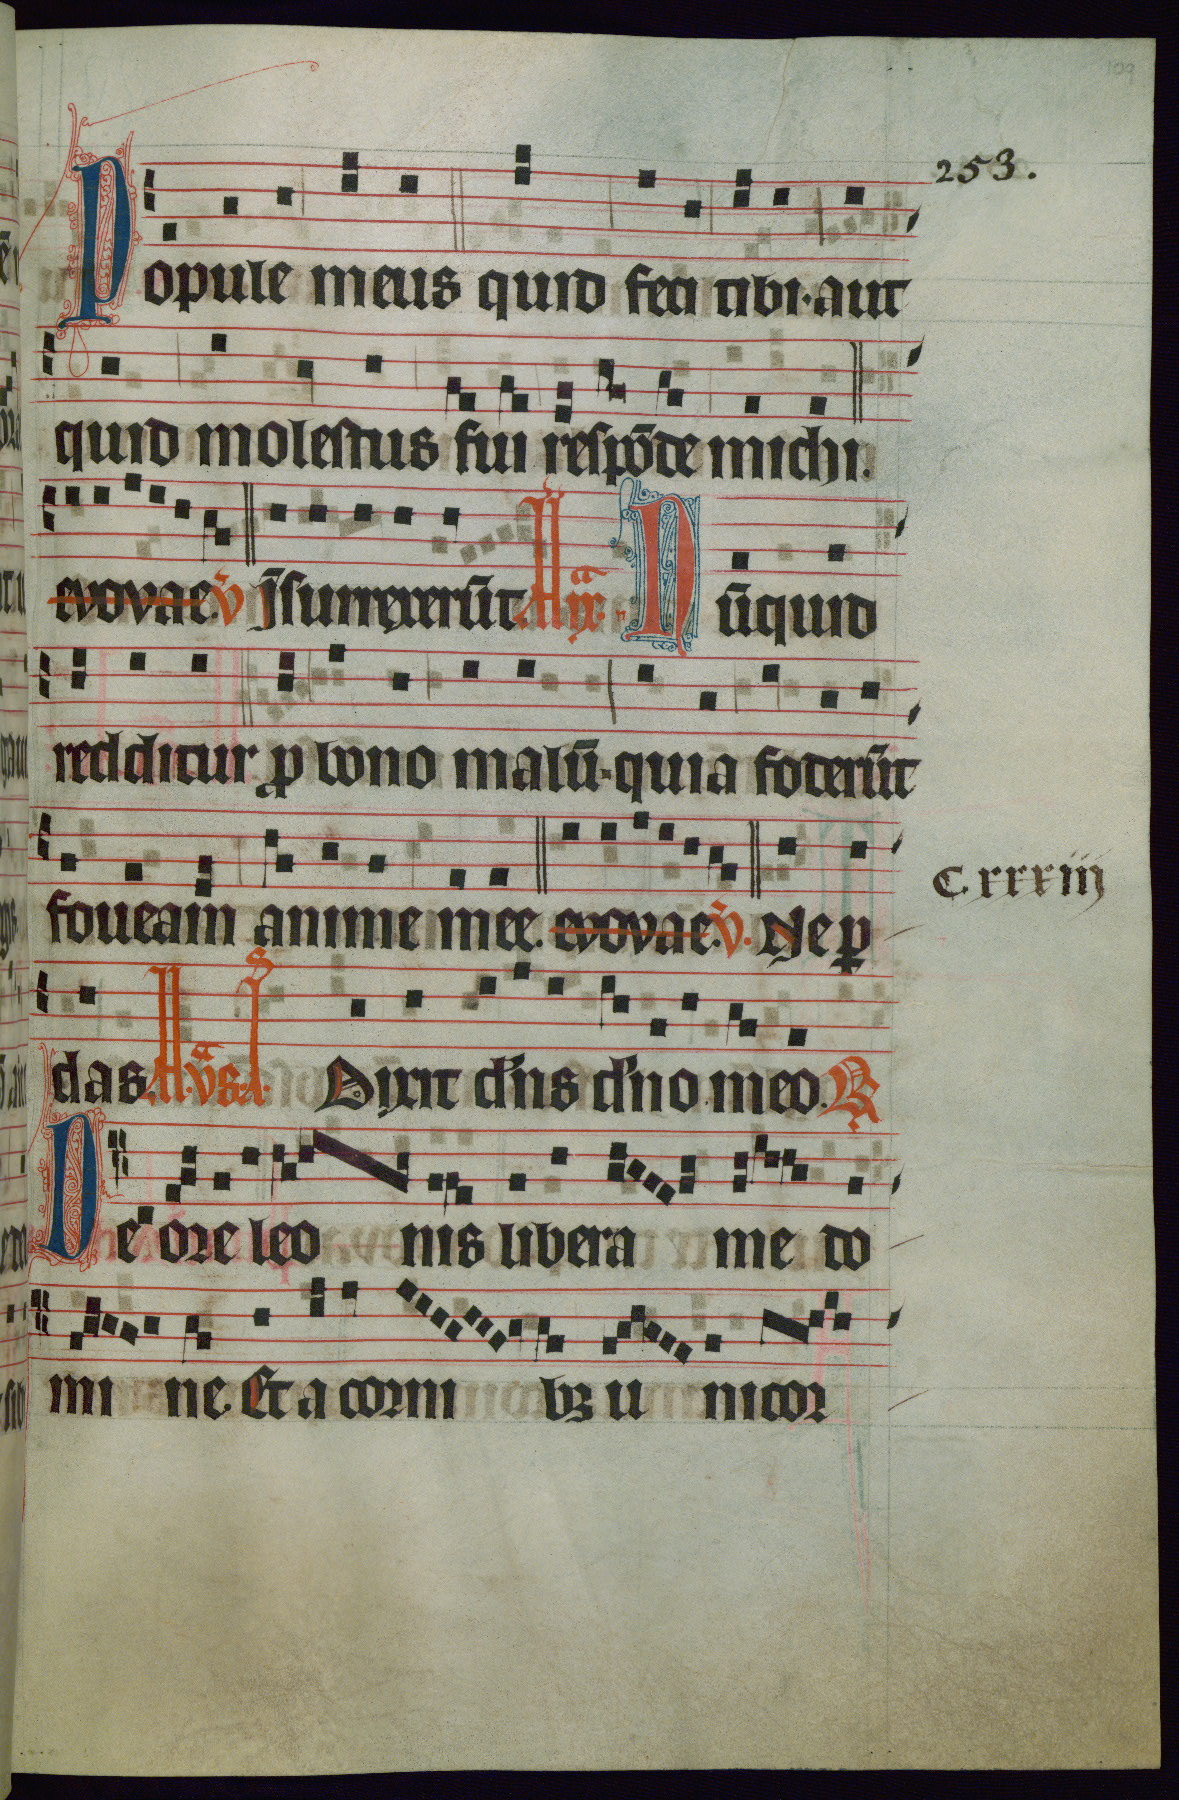 109
253.
Popule meus quid feci tibi · aut
quid molestus fui respōde michi.
evovae. v̄ Īsurrexerūt. Nūquid
redditur ꝓ bono malū · quia foderūt
foueam anime mee. evovae. v̄. Ne ꝑ
C. xxxiiij
das. Dixit dn̄s dn̄o meo. R
De ore leo nis libera me do
mi ne. Et a corni bꝫ u nicor